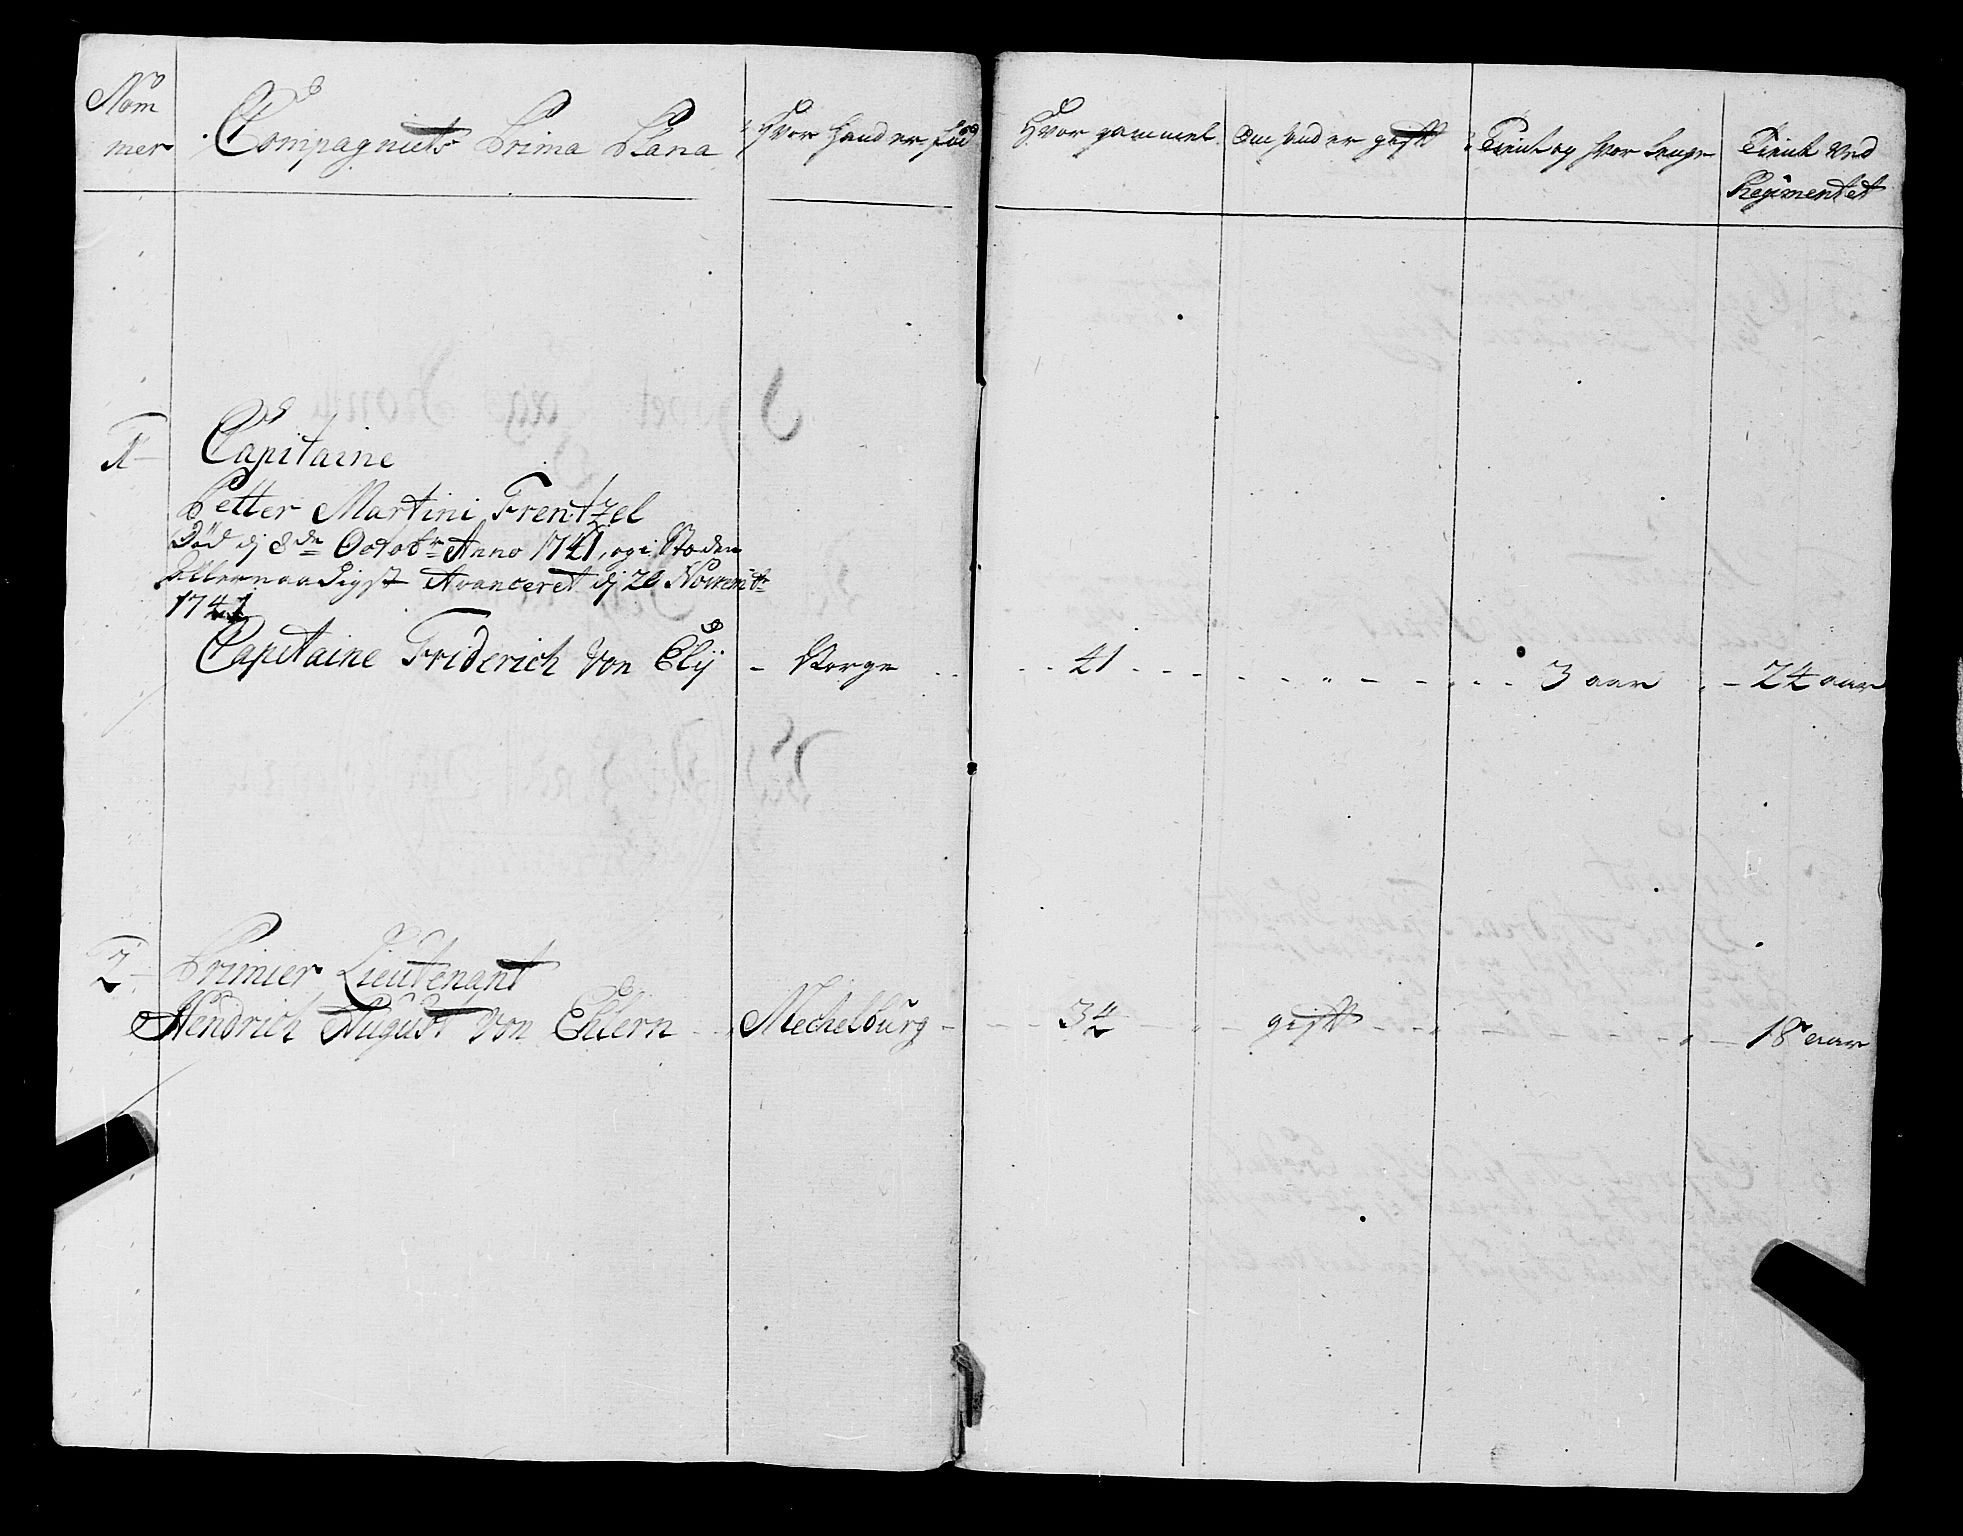 Nom
mer
Compagniets Prima Plana
Hvor hand er fød
Hvor gammel
Om hand er gift
Tient og hvor lenge
Tient ved
Regimentet
1
Capitaine
Petter Martini Frentzel
Død dj 8de Octobr Anno 1741, og i Steden
Allernaadigst Avanceret dj 20 Novembr
1741
Capitaine Friderich Von Elij - Norge - - 41 - - - 3 aar - 24 aar
2
Primier Lieutenant
Hendrich August Von Ehlern - - Mechelburg - - 34 - gift - - - 18 aar